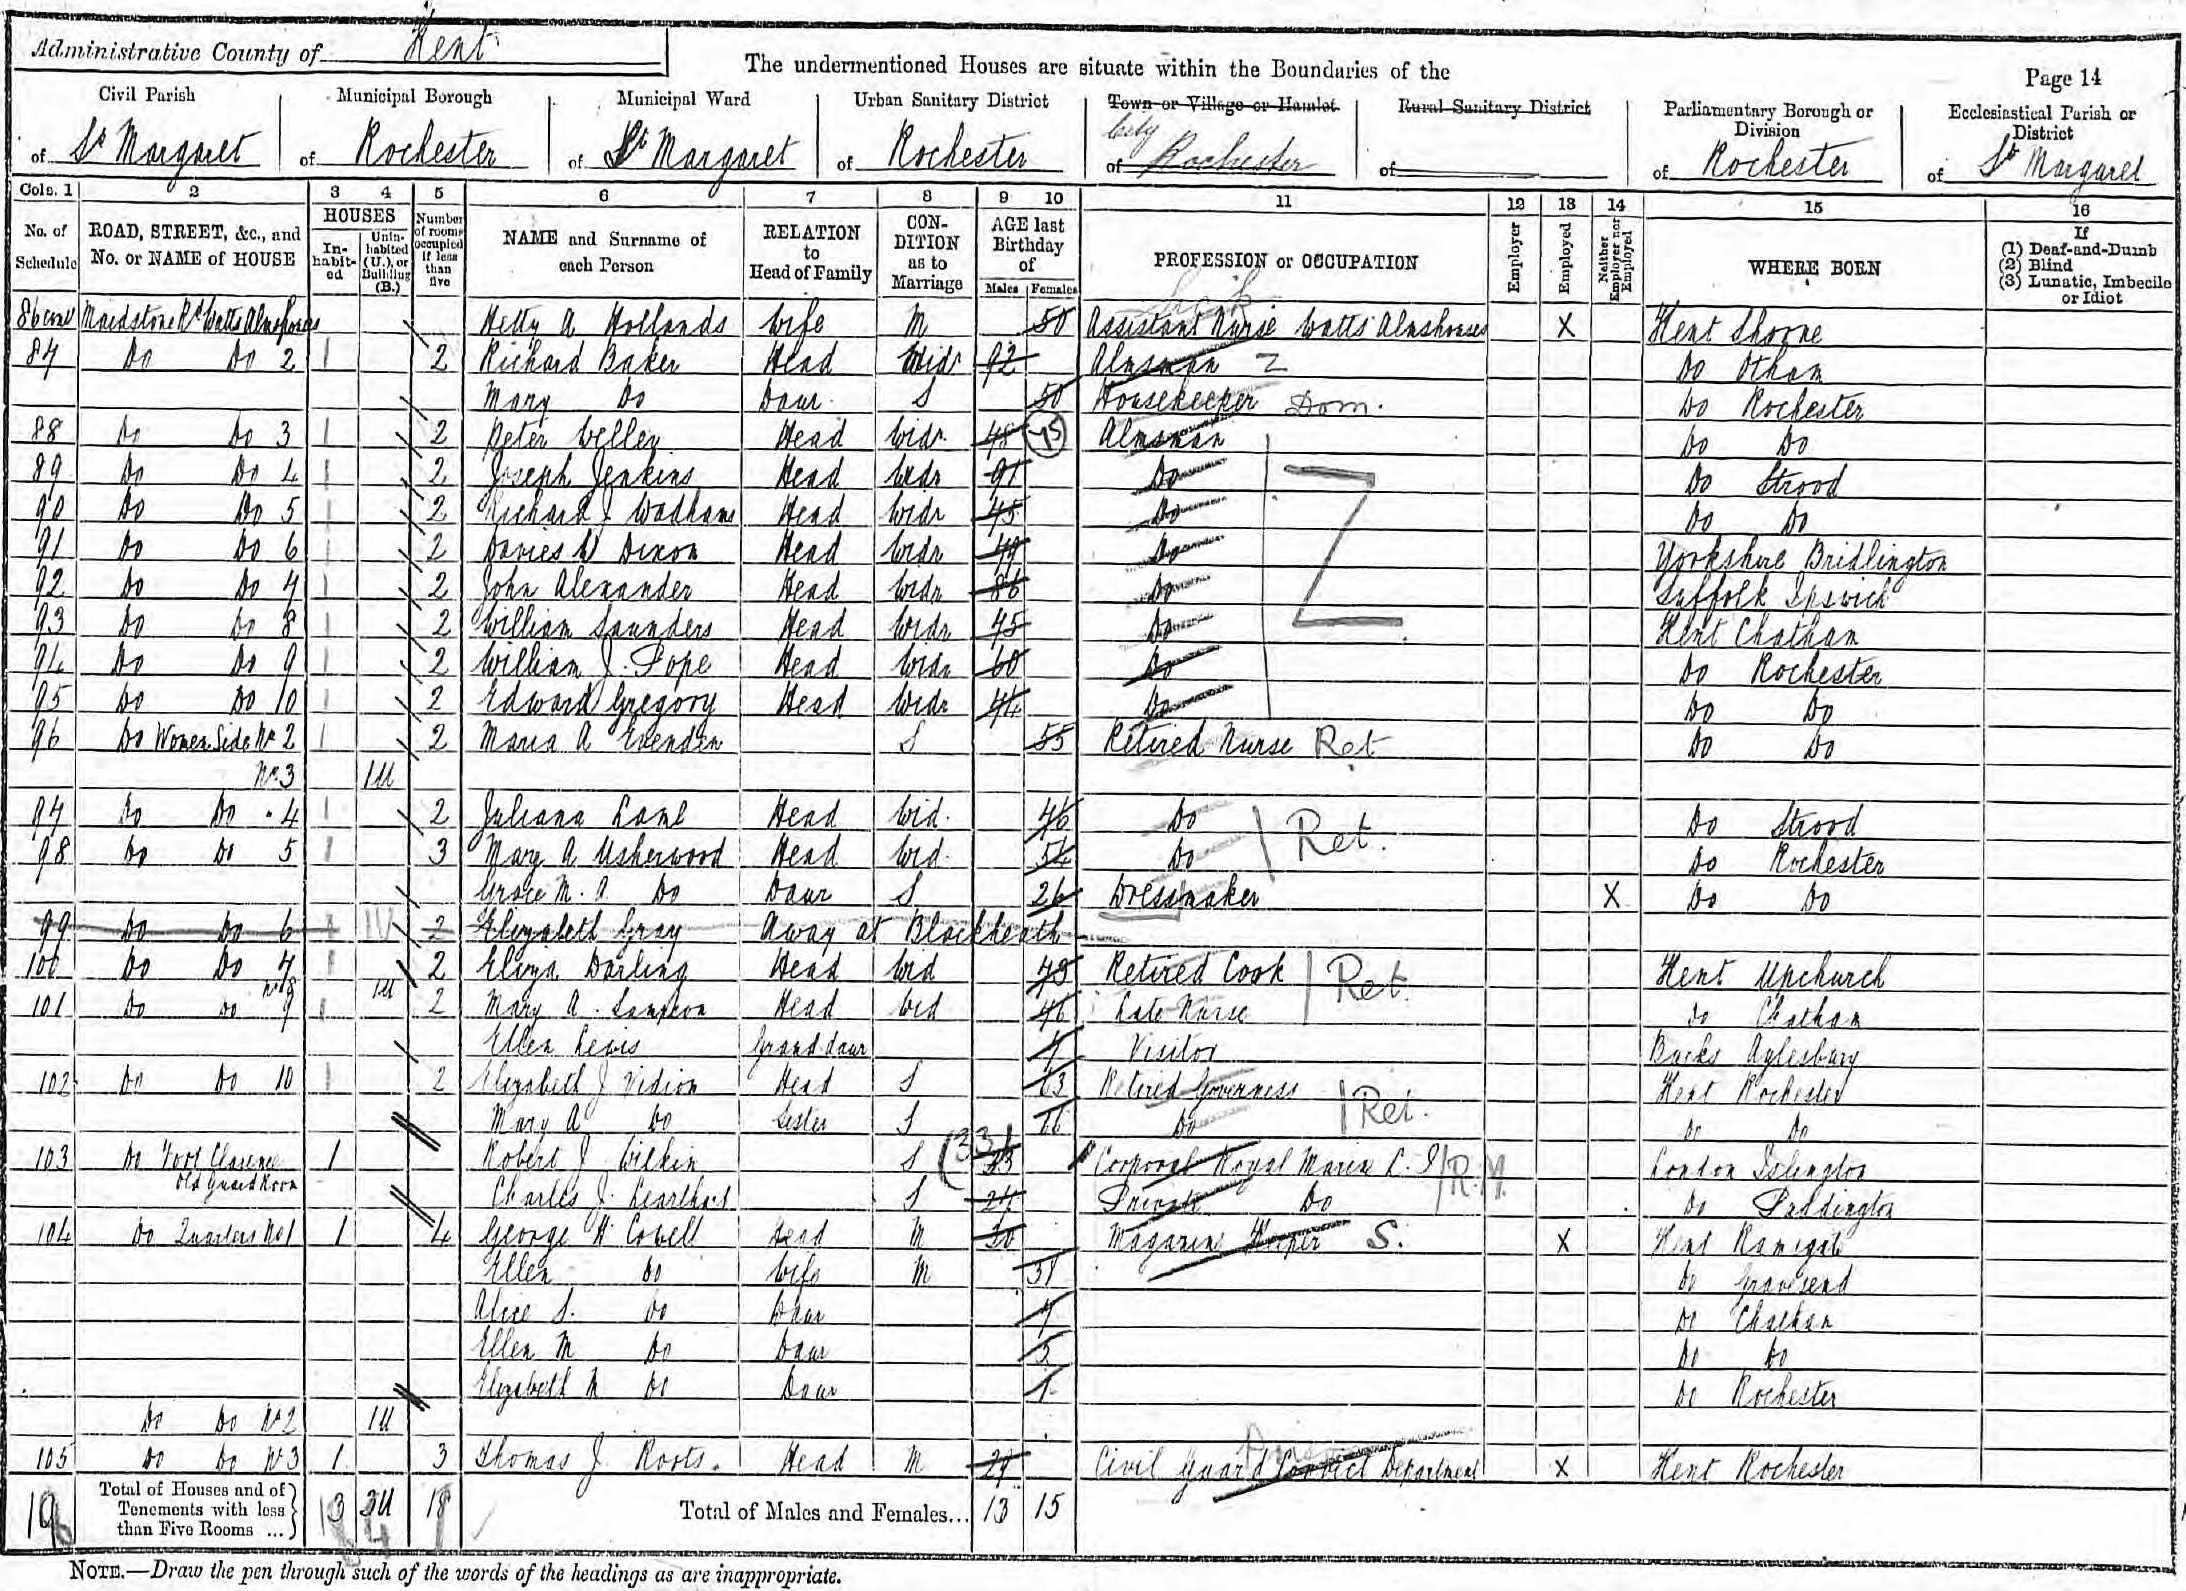 Administrative County of Kent
The undermentioned Houses are situate within the Boundaries of the
Page 14
Civil Parish of St Margaret
Municipal Borough of Rochester
Municipal Ward of St Margaret
Urban Sanitary District of Rochester
Town or Village or Hamlet City of Rochester
Rural Sanitary District of
Parliamentary Borough or Division of Rochester
Ecclesiastical Parish or District of St Margaret
Cols. 1 2 3 4 5 6 7 8 9 10 11 12 13 14 15 16
No. of Schedule
ROAD, STREET, &c., and No. or NAME of HOUSE
HOUSES
In-habit-ed
Unin-habited (U.), or Building (B.)
Number of rooms occupied if less than five
NAME and Surname of each Person
RELATION to Head of Family
CON-DITION as to Marriage
AGE last Birthday of
Males Females
PROFESSION or OCCUPATION
Employer
Employed
Neither Employer nor Employed
WHERE BORN
If
(1) Deaf-and-Dumb
(2) Blind
(3) Lunatic, Imbecile or Idiot
86 Maidstone Rd Watts Almshouses Hetty A Hollands Wife M 50 Assistant Nurse Watts Almshouses X Kent Shorne
87 Do Do 2 1 2 Richard Baker Head Widr 72 Almsman Do Otham
Mary Do Daur S 50 Housekeeper Dom. Do Rochester
88 Do Do 3 1 2 Peter Head Widr 75 Almsman Do Do
89 Do Do 4 1 2 Joseph Jenkins Head Widr 71 Do Do Strood
90 Do Do 5 1 2 Richard J Wadhams Head Widr 75 Do Do Do
91 Do Do 6 1 2 Davies W Dixon Head Widr 79 Do Yorkshire Bridlington
92 Do Do 7 1 2 John Alexander Head Widr 86 Do Suffolk Ipswich
93 Do Do 8 1 2 William Saunders Head Widr 75 Do Kent Chatham
94 Do Do 9 1 2 William J. Pope Head Widr 60 Do Do Rochester
95 Do Do 10 1 2 Edward Gregory Head Widr 74 Do Do Do
96 Do Women Side No 2 1 2 Maria A Evenden S 55 Retired Nurse Ret Do Do
No 3 1U
97 Do Do 4 1 2 Juliana Lamb Head Wid. 76 Do Ret. Do Strood
98 Do Do 5 1 3 Mary A Usherwood Head Wid. 54 Do Do Rochester
Grace M. A Do Daur S 26 Dressmaker X Do Do
99 Do Do 6 2 Elizabeth Gray Away at Blackheath
100 Do Do 7 1 2 Eliza Darling Head Wid 73 Retired Cook Ret. Kent Upchurch
No 8 1U
101 Do Do 9 1 2 Mary A. Head Wid 76 Late Nurse Do Chatham
Ellen Lewis Grand daur 7 Visitor Bucks Aylesbury
102 Do Do 10 1 2 Elizabeth J Vidion Head S 63 Retired Governess Ret. Kent Rochester
Mary A Do Sister S 66 Do Do Do
103 Do Fort Clarence Old Guard Room 1 Robert J Wilkin S 23 Corporal Royal Marine L. I R.M. London Islington
Charles J. S 24 Private Do Do Paddington
104 Do Quarters No 1 1 4 George H Cowell Head M 30 Magazine Keeper S. X Kent Ramsgate
Ellen Do Wife M 31 Do Gravesend
Alice S. Do Daur 7 Do Chatham
Ellen M Do Daur 5 Do Do
Elizabeth M Do Daur 1 Do Rochester
Do Do No 2 1U
105 Do Do No 3 1 3 Thomas J Roots. Head M 29 Civil Guard Convict Department X Kent Rochester
Total of Houses and of Tenements with less than Five Rooms ... 3U 18 Total of Males and Females... 13 15
NOTE.—Draw the pen through such of the words of the headings as are inappropriate.